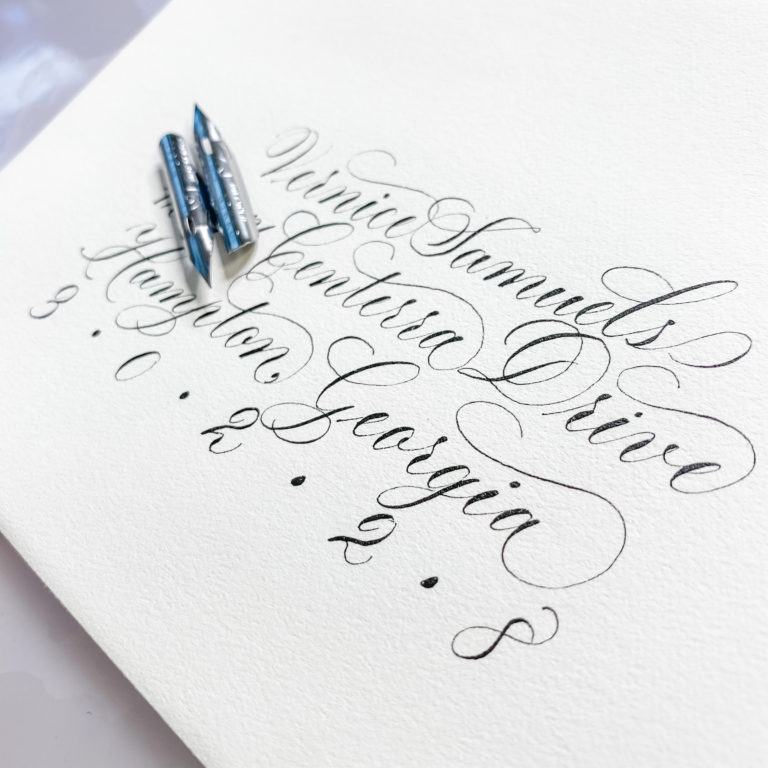 Vernice Samuels
Centerra Drive
Hampton, Georgia
3 · 0 · 2 · 2 · 8